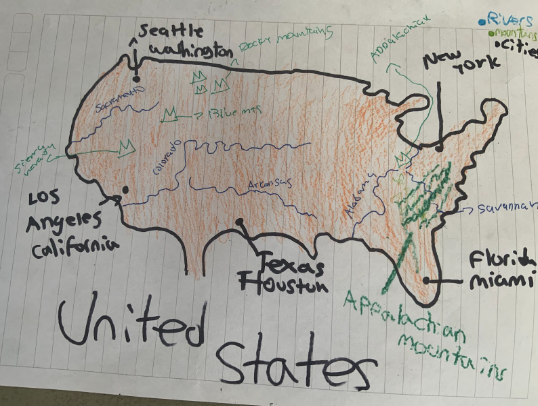 Rivers
mountains
Cities
Seattle
washington
Rocky mountains
Adirondack
New
York
Sacramento
Blue mts
Sierra
nevada
Colorado
Arkansas
Alabama
Savannah
LOS
Angeles
California
Texas
Houston
Florida
miami
Appalachian
mountains
United
States